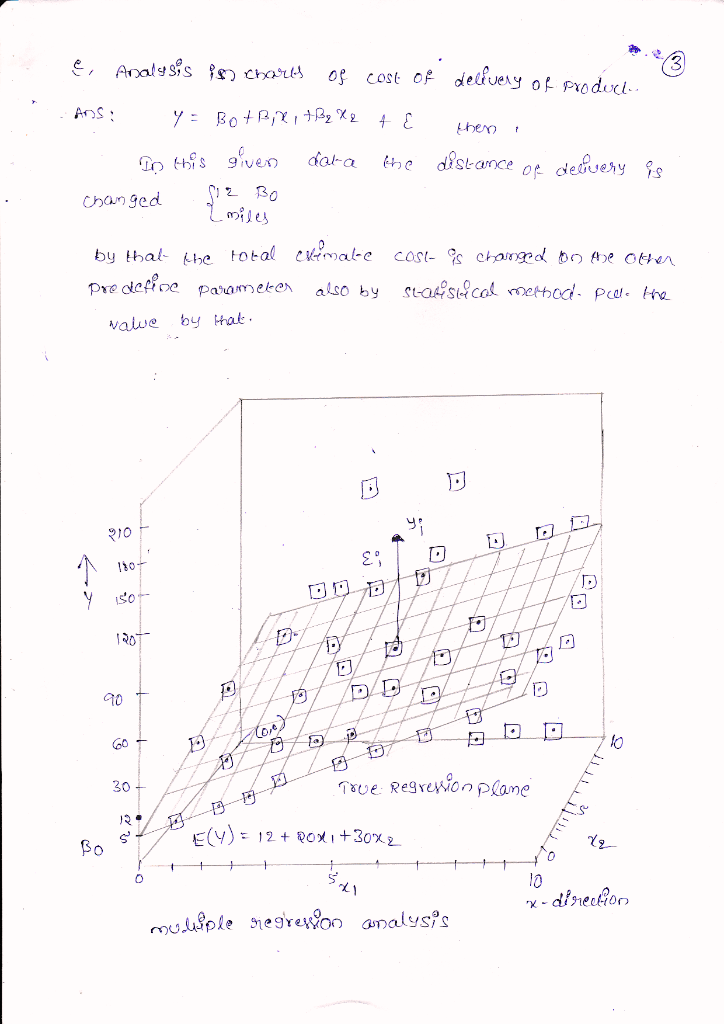 3
e, Analysis in charts of cost of delivery of product.
Ans: y = B0 + B1x1 + B2x2 + ε then,
In this given data the distance of delivery is
changed {12 B0
miles
by that the total estimate cost is changed on the other
predefine parameter also by statistical method. put the
value by that.
210
180
150
120
90
60
30
12
5
B0
↑
y
yi
εi
(0,0)
True Regression plane
E(y) = 12 + 20x1 + 30x2
0
5
x1
10
0
5
10
x2
x-direction
multiple regression analysis